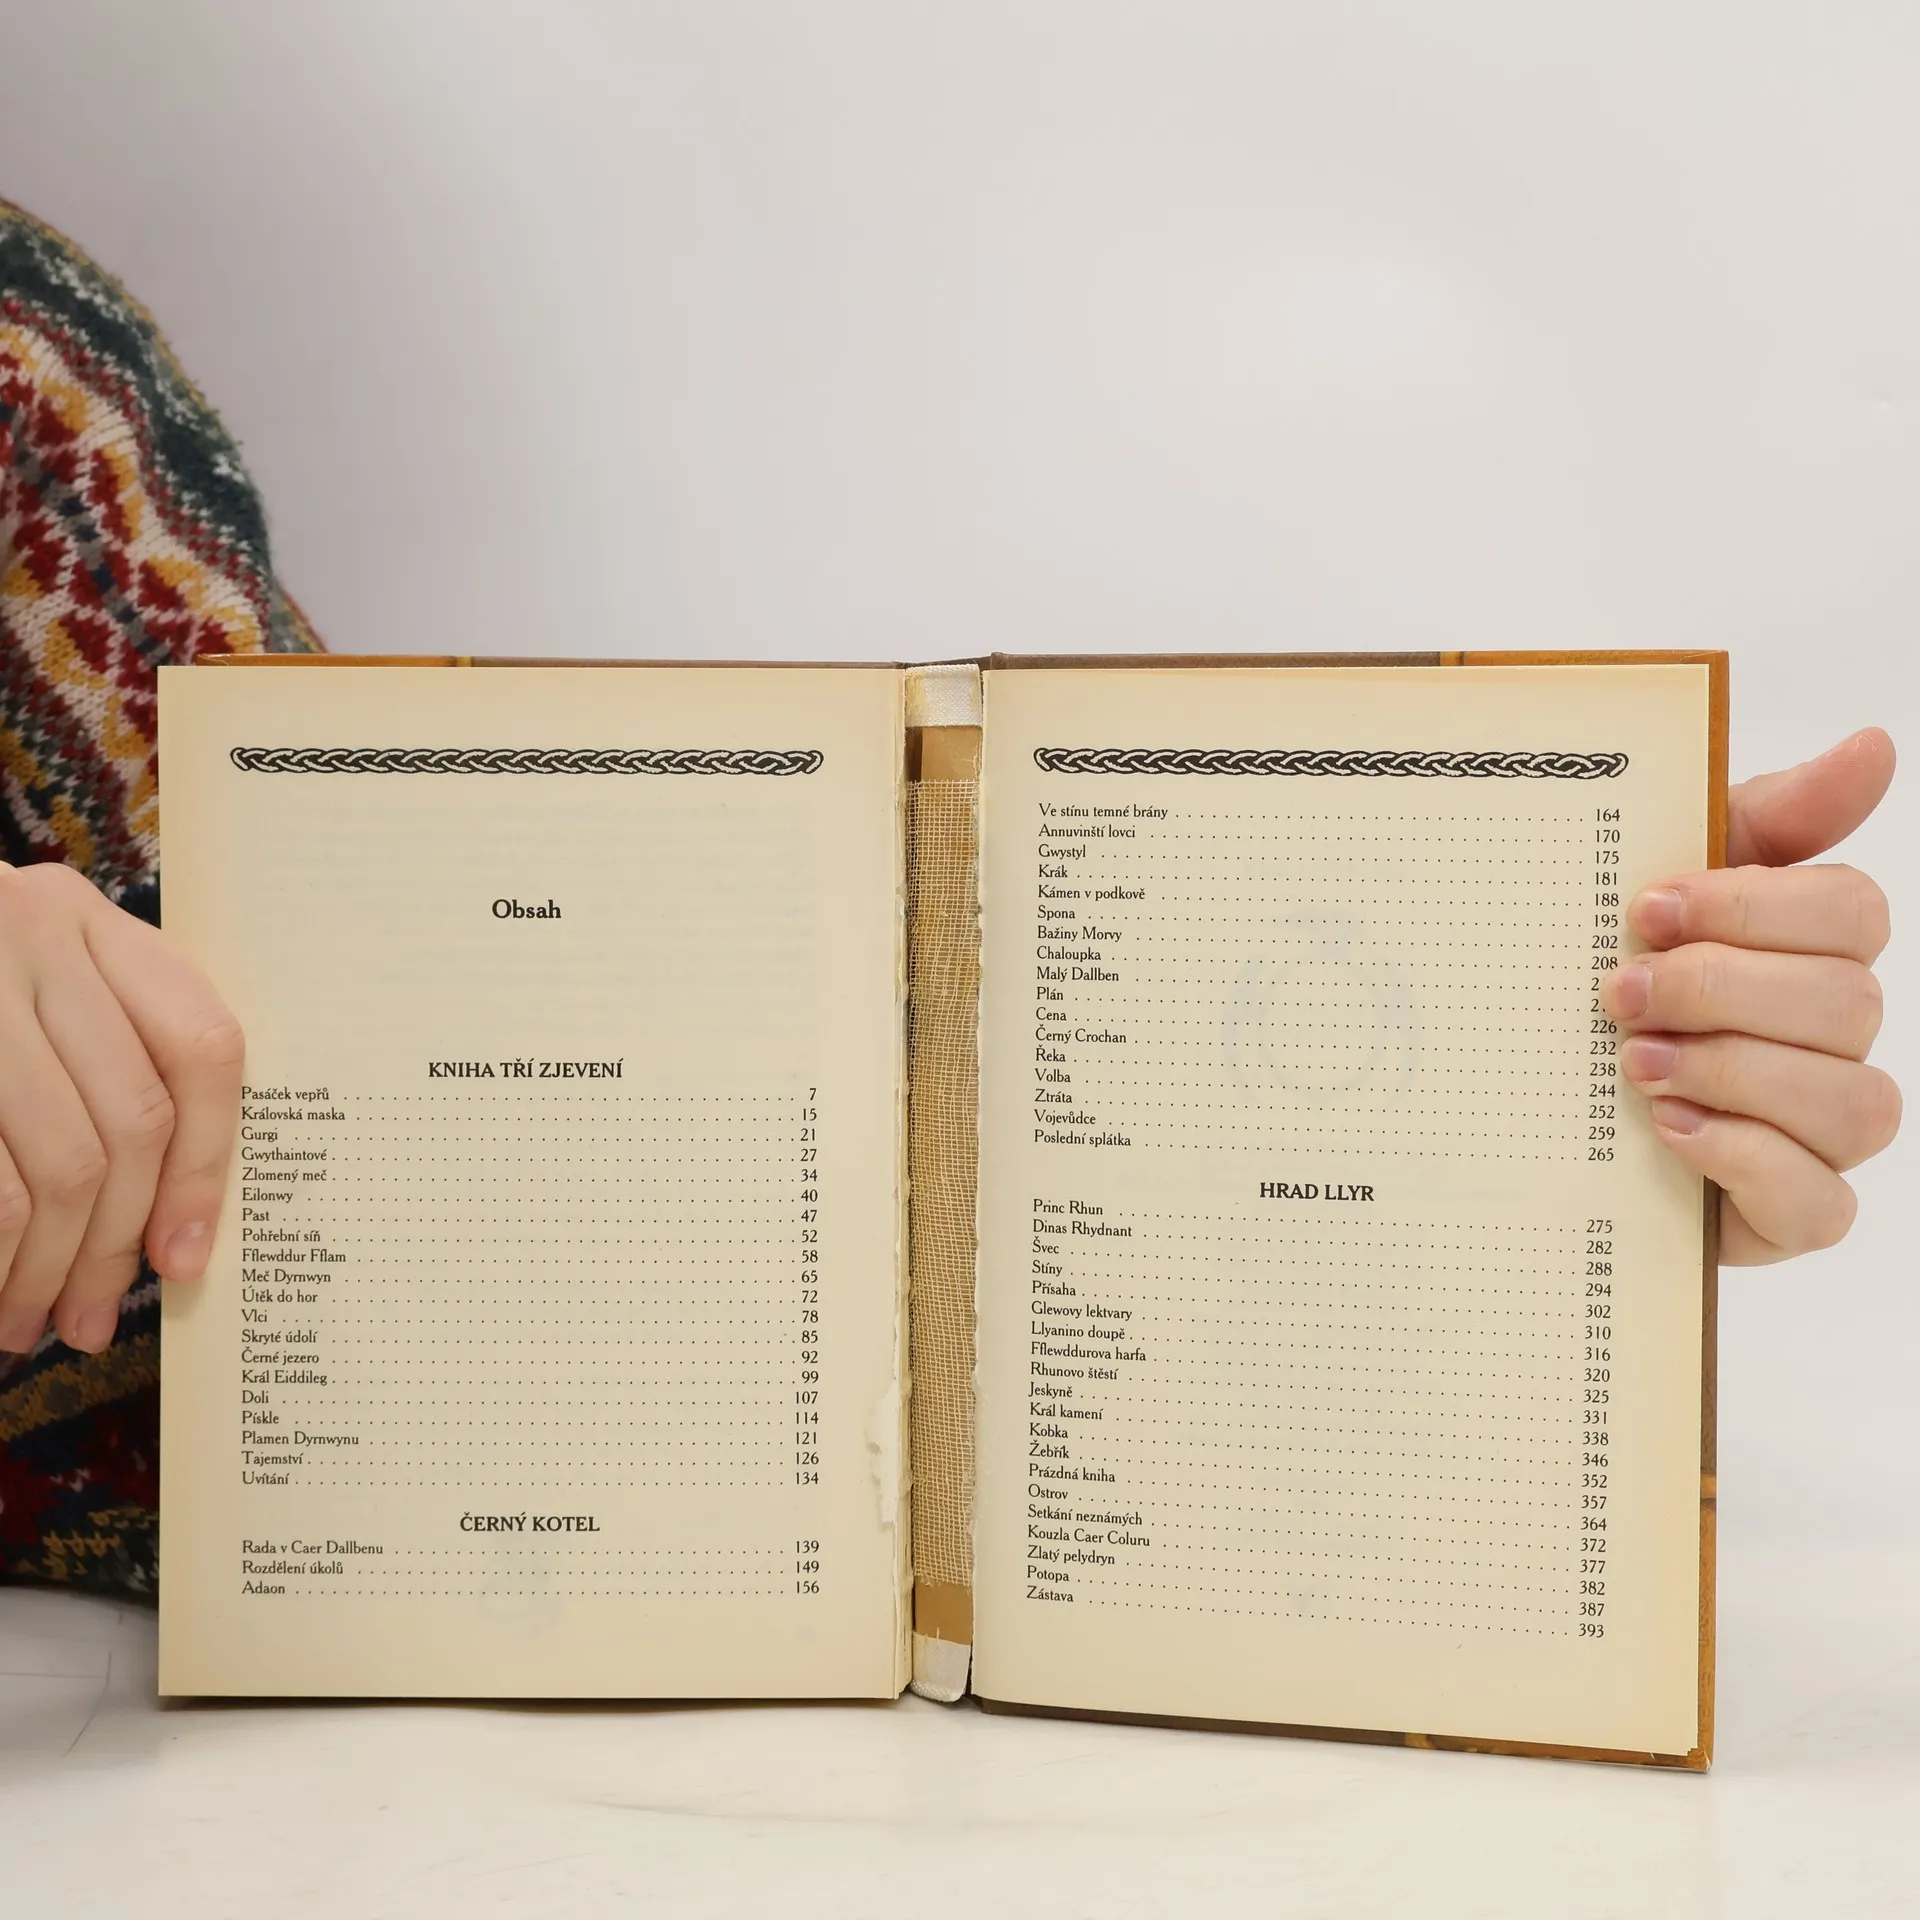 Obsah
KNIHA TŘÍ ZJEVENÍ
Pasáček vepřů . . . . . . . . . . 7
Královská maska . . . . . . . . . . 15
Gurgi . . . . . . . . . . 21
Gwythaintové . . . . . . . . . . 27
Zlomený meč . . . . . . . . . . 34
Eilonwy . . . . . . . . . . 40
Past . . . . . . . . . . 47
Pohřební síň . . . . . . . . . . 52
Fflewddur Fflam . . . . . . . . . . 58
Meč Dyrnwyn . . . . . . . . . . 65
Útěk do hor . . . . . . . . . . 72
Vlci . . . . . . . . . . 78
Skryté údolí . . . . . . . . . . 85
Černé jezero . . . . . . . . . . 92
Král Eiddileg . . . . . . . . . . 99
Doli . . . . . . . . . . 107
Pískle . . . . . . . . . . 114
Plamen Dyrnwynu . . . . . . . . . . 121
Tajemství . . . . . . . . . . 126
Uvítání . . . . . . . . . . 134
ČERNÝ KOTEL
Rada v Caer Dallbenu . . . . . . . . . . 139
Rozdělení úkolů . . . . . . . . . . 149
Adaon . . . . . . . . . . 156
Ve stínu temné brány . . . . . . . . . . 164
Annuvinští lovci . . . . . . . . . . 170
Gwystyl . . . . . . . . . . 175
Krák . . . . . . . . . . 181
Kámen v podkově . . . . . . . . . . 188
Spona . . . . . . . . . . 195
Bažiny Morvy . . . . . . . . . . 202
Chaloupka . . . . . . . . . . 208
Malý Dallben . . . . . . . . . .
Plán . . . . . . . . . .
Cena . . . . . . . . . . 226
Černý Crochan . . . . . . . . . . 232
Řeka . . . . . . . . . . 238
Volba . . . . . . . . . . 244
Ztráta . . . . . . . . . . 252
Vojevůdce . . . . . . . . . . 259
Poslední splátka . . . . . . . . . . 265
HRAD LLYR
Princ Rhun . . . . . . . . . . 275
Dinas Rhydnant . . . . . . . . . . 282
Švec . . . . . . . . . . 288
Stíny . . . . . . . . . . 294
Přísaha . . . . . . . . . . 302
Glewovy lektvary . . . . . . . . . . 310
Llyanino doupě . . . . . . . . . . 316
Fflewddurova harfa . . . . . . . . . . 320
Rhunovo štěstí . . . . . . . . . . 325
Jeskyně . . . . . . . . . . 331
Král kamení . . . . . . . . . . 338
Kobka . . . . . . . . . . 346
Žebřík . . . . . . . . . . 352
Prázdná kniha . . . . . . . . . . 357
Ostrov . . . . . . . . . . 364
Setkání neznámých . . . . . . . . . . 372
Kouzla Caer Coluru . . . . . . . . . . 377
Zlatý pelydryn . . . . . . . . . . 382
Potopa . . . . . . . . . . 387
Zástava . . . . . . . . . . 393